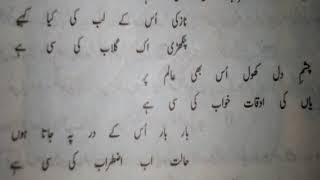 نازکی اُس کے لب کی کیا کہیے
پنکھڑی اک گلاب کی سی ہے
چشمِ دل کھول اُس بھی عالم پر
یاں کی اوقات خواب کی سی ہے
بار بار اُس کے در پہ جاتا ہوں
حالت اب اضطراب کی سی ہے